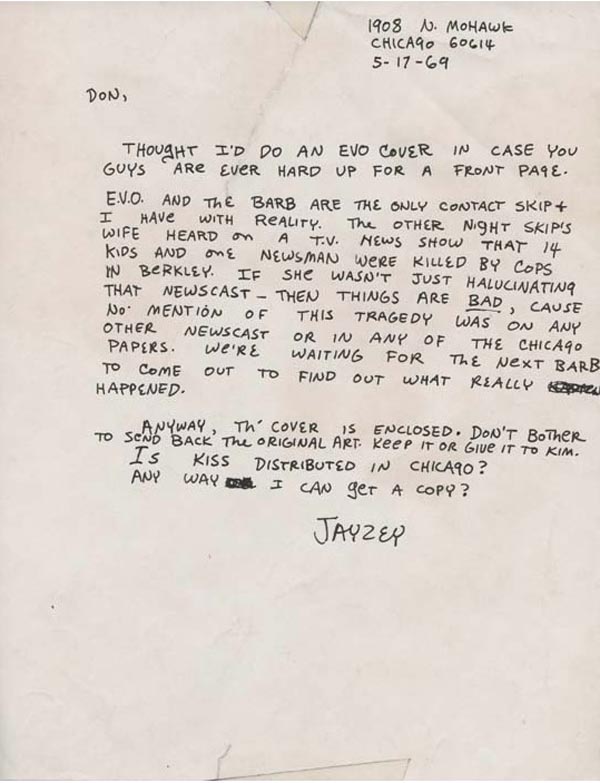 1908 N. MOHAWK
CHICAGO 60614
5-17-69
DON,
THOUGHT I'D DO AN EVO COVER IN CASE YOU
GUYS ARE EVER HARD UP FOR A FRONT PAGE.
E.V.O. AND THE BARB ARE THE ONLY CONTACT SKIP +
I HAVE WITH REALITY. THE OTHER NIGHT SKIP'S
WIFE HEARD ON A T.V. NEWS SHOW THAT 14
KIDS AND ONE NEWSMAN WERE KILLED BY COPS
IN BERKLEY. IF SHE WASN'T JUST HALUCINATING
THAT NEWSCAST – THEN THINGS ARE BAD, CAUSE
NO MENTION OF THIS TRAGEDY WAS ON ANY
OTHER NEWSCAST OR IN ANY OF THE CHICAGO
PAPERS. WE'RE WAITING FOR THE NEXT BARB
TO COME OUT TO FIND OUT WHAT REALLY
HAPPENED.
ANYWAY, TH' COVER IS ENCLOSED. DON'T BOTHER
TO SEND BACK THE ORIGINAL ART. KEEP IT OR GIVE IT TO KIM.
IS KISS DISTRIBUTED IN CHICAGO?
ANY WAY I CAN GET A COPY?
JAYZEY